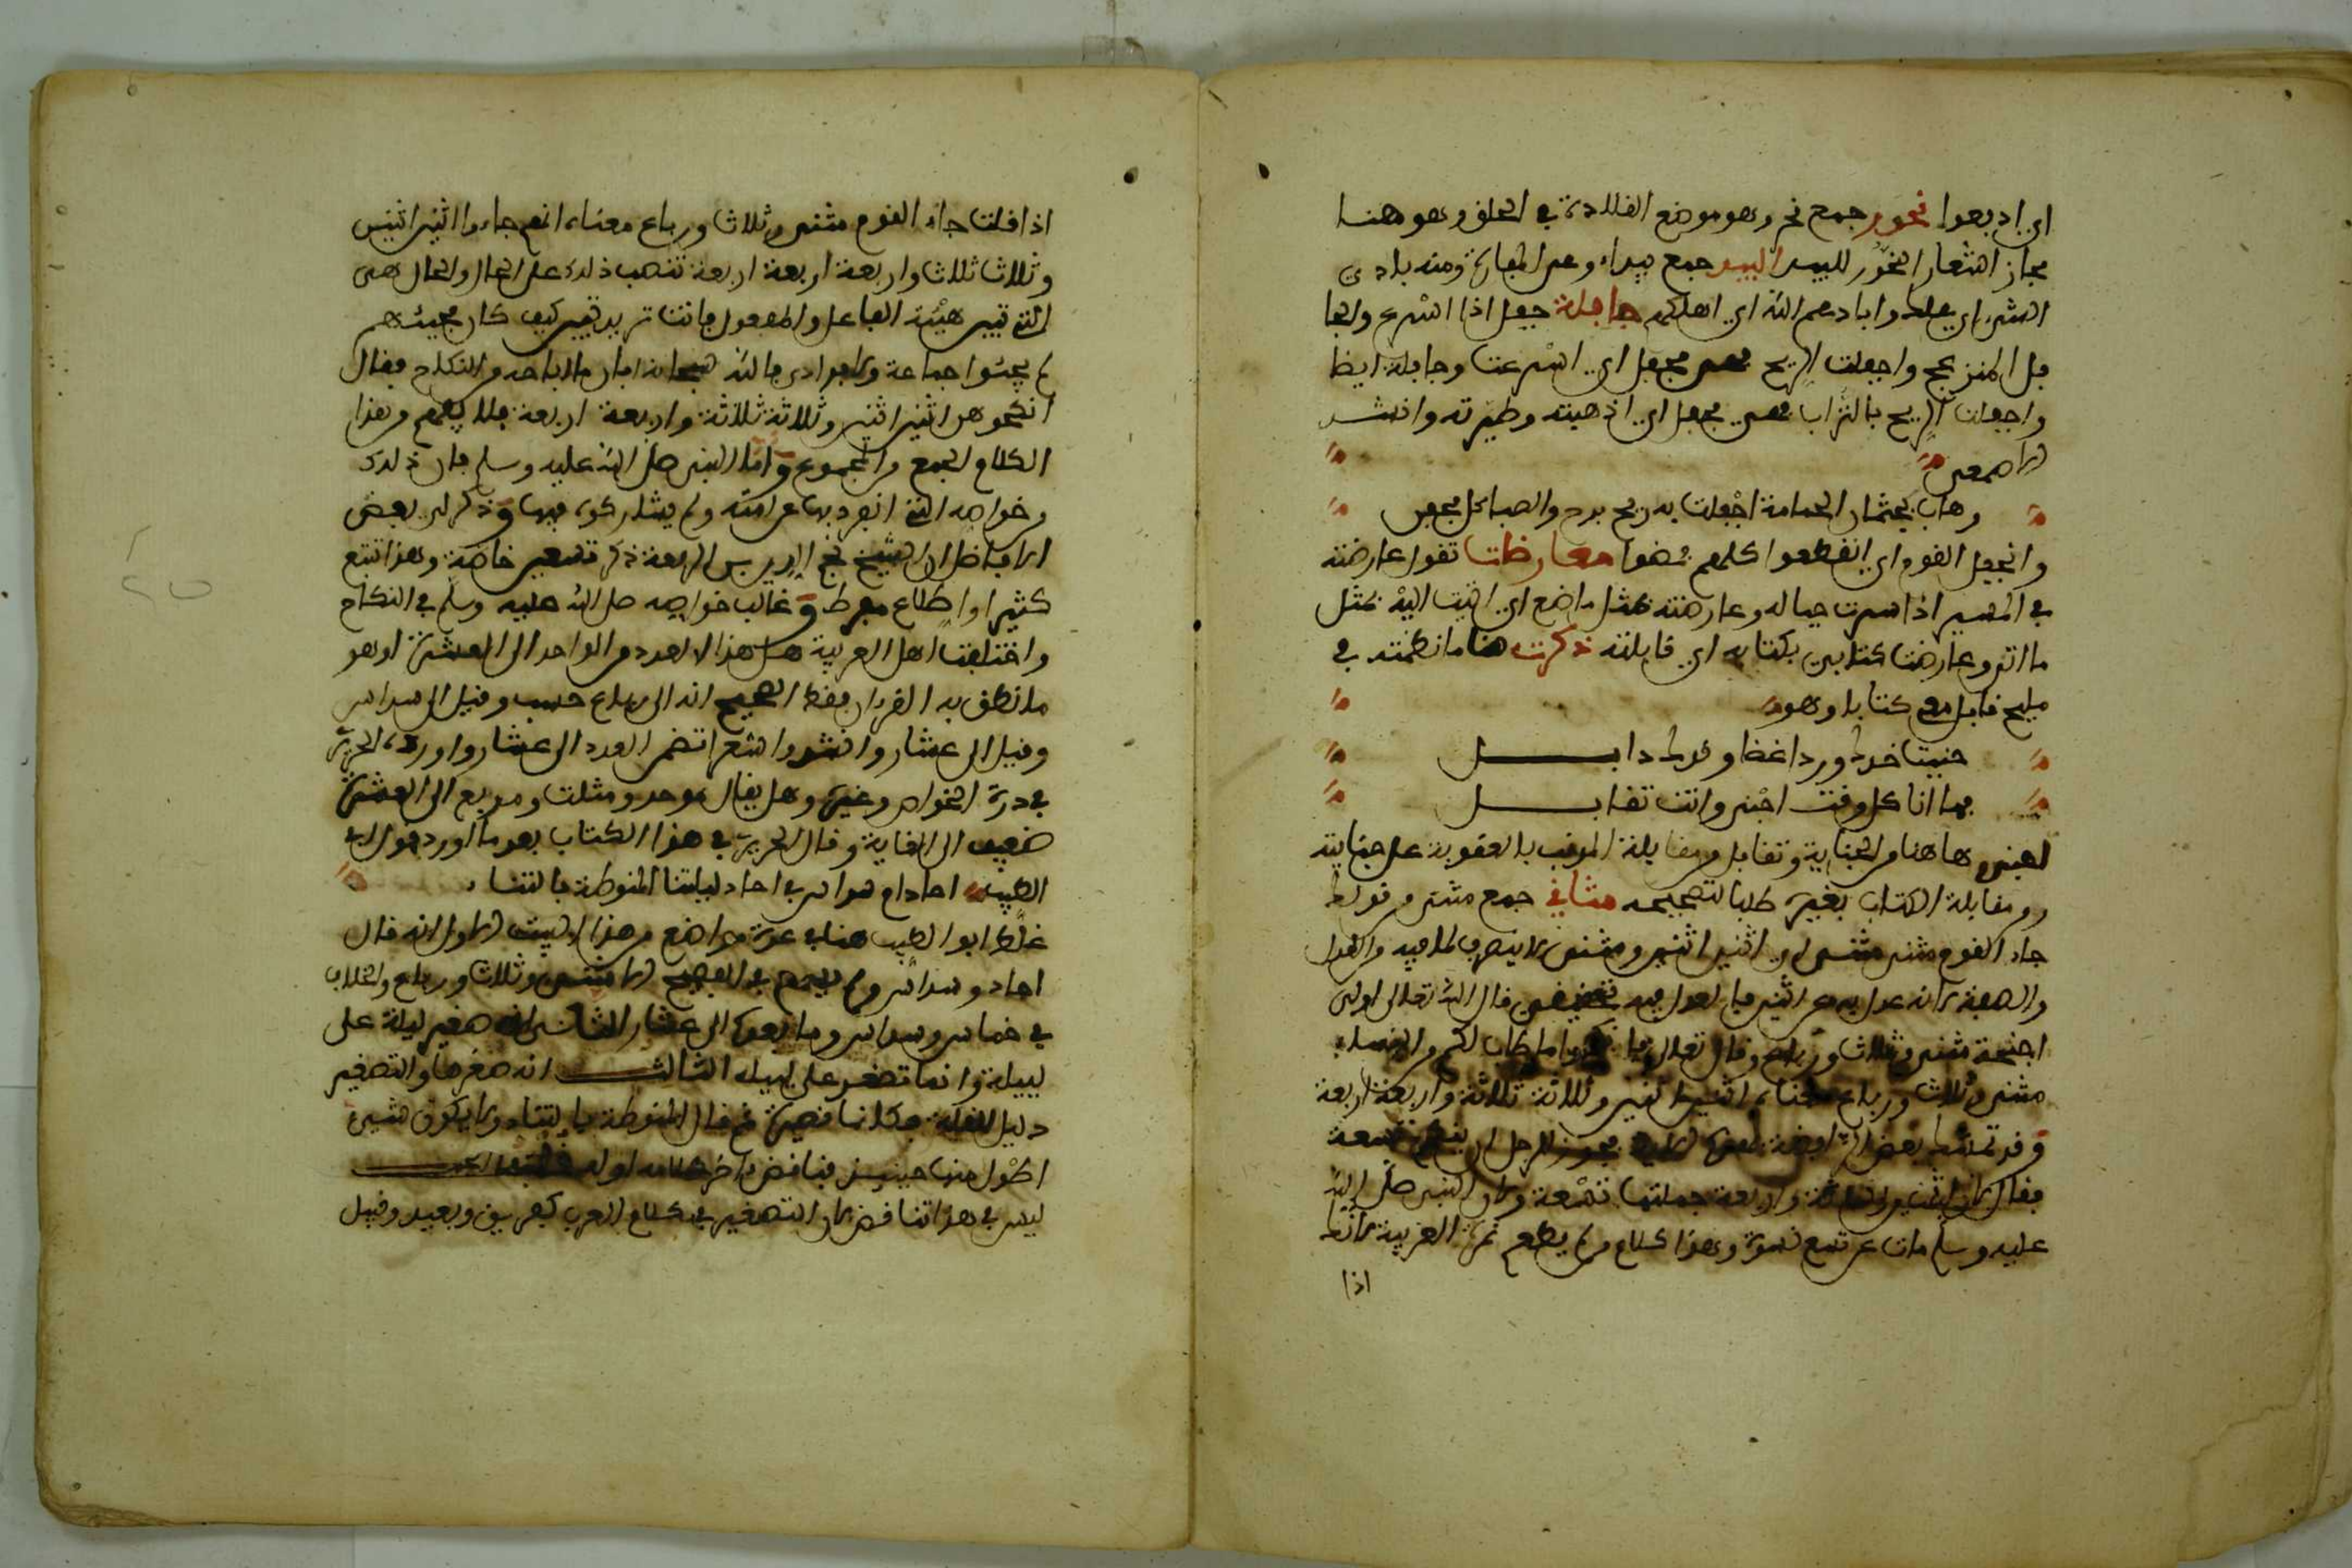 اي ادبعوا نحور جمع نحر وهو موضع القلادة في الحلق وهو هنا
مجاز استعار النحور للبيد البيد جمع بيداء وهي المفازة ومنه باد
الشيء اي هلك وابادهم الله اي اهلكهم جافلة جفل اذا اسرع والجا
فل المنزعج واجفلت الريح فهي مجفل اي اسرعت وجافلة ايضا
واجفلت الريح بالتراب فهي مجفل اي اذهبته وطيرته وانشد
الاصمعي
وهاب كجثمان الحمامة اجفلت به ريح ترج والصبا كل مجفل
وانجفل القوم اي انقطعوا كلهم فمضوا معارضات تقول عارضته
في المسير اذا سرت حياله وعارضته بمثل ما صنع اي اتيت اليه بمثل
ما اتى وعارضت كتابي بكتابه اي قابلته ذكرت هنا ما نظمته في
مليح قابل معي كتابا وهو
جنيت خدا وردا غضا و دابــــل
بما انا كل وقت اجني وانت تقابـــل
اجني هاهنا من الجناية وتقابل من مقابلة المذنب بالعقوبة على جنايته
ومقابلة الكتاب بغيره طلبا لتصحيحه مثاني جمع مثنى من قولك
جاء القوم مثنى مثنى اي اثنين اثنين ومثنى لا ينصرف لما فيه من العدل
والصفة لانه عدل به عن اثنين فالعدل فيه قال الله تعالى اولي
اجنحة مثنى وثلاث ورباع وقال تعالى فانكحوا ما طاب لكم من النساء
مثنى وثلاث ورباع معناه اثنين اثنين وثلاثة ثلاثة واربعة اربعة
وقد تمسك بعض الرافضة بهذه الاية يجوز للرجل ان ينكح تسعة
فقال لان اثنين وثلاثة واربعة جملتها تسعة ولان النبي صلى الله
عليه وسلم مات عن تسع نسوة وهذا كلام من لم يطعم ثمرة العربية لانك
اذا
اذا قلت جاء القوم مثنى وثلاث ورباع معناه انهم جاءوا اثنين اثنين
وثلاثا ثلاثا واربعة اربعة تنصب ذلك على الحال والحال هي
التي تبين هيئة الفاعل والمفعول فانت تريد تبيين كيف كان مجيئهم
لم يجيئوا جماعة ولا فرادى فالله سبحانه ابان الاباحة من النكاح فقال
انكحوهن اثنين اثنين وثلاثة ثلاثة واربعة اربعة فلا يفهم من هذا
الكلام الجمع من المجموع واما النبي صلى الله عليه وسلم فان ذلك
من خواصه التي انفرد بها عن امته ولم يشاركوه فيها وذكر لي بعض
الافاضل ان الشيخ نجم الدين بن الرفعة ذكر تسعين خاصة وهذا تتبع
كثير واطلاع مفرط وغالب خواصه صلى الله عليه وسلم في النكاح
واختلفت اهل العربية هل هذا العدد من الواحد الى العشرة او هو
ما نطق به القرءان فقط الصحيح انه الى رباع حسب وقيل الى سداس
وقيل الى عشار وانشدوا شعرا تضمن العدد الى عشار واورده الحريري
في درة الغواص وغيره وهل يقال موحد ومثلث ومربع الى العشرة
ضعيف الى الغاية وقال الحريري في هذا الكتاب بعد ما اورد قول ابي
الطيب احاد ام سداس في احاد لييلتنا المنوطة بالتناد
غلط ابو الطيب هنا في عدة مواضع من هذا البيت الاول انه قال
احاد وسداس ولم يسمع في الفصيح الا مثنى وثلاث ورباع والخلاف
في خماس وسداس وما بعده الى عشار الثاني انه صغر ليلة على
لييلة وانما تصغر على لييلية الثالث انه صغرها والتصغير
دليل القلة فكانها قصيرة ثم قال المنوطة بالتناد ولا يكون شيء
اطول منها حينئذ فناقض اخر كلامه اوله
ليس في هذا تناقض لان التصغير في كلام العرب كفريق وبعيد وقبيل